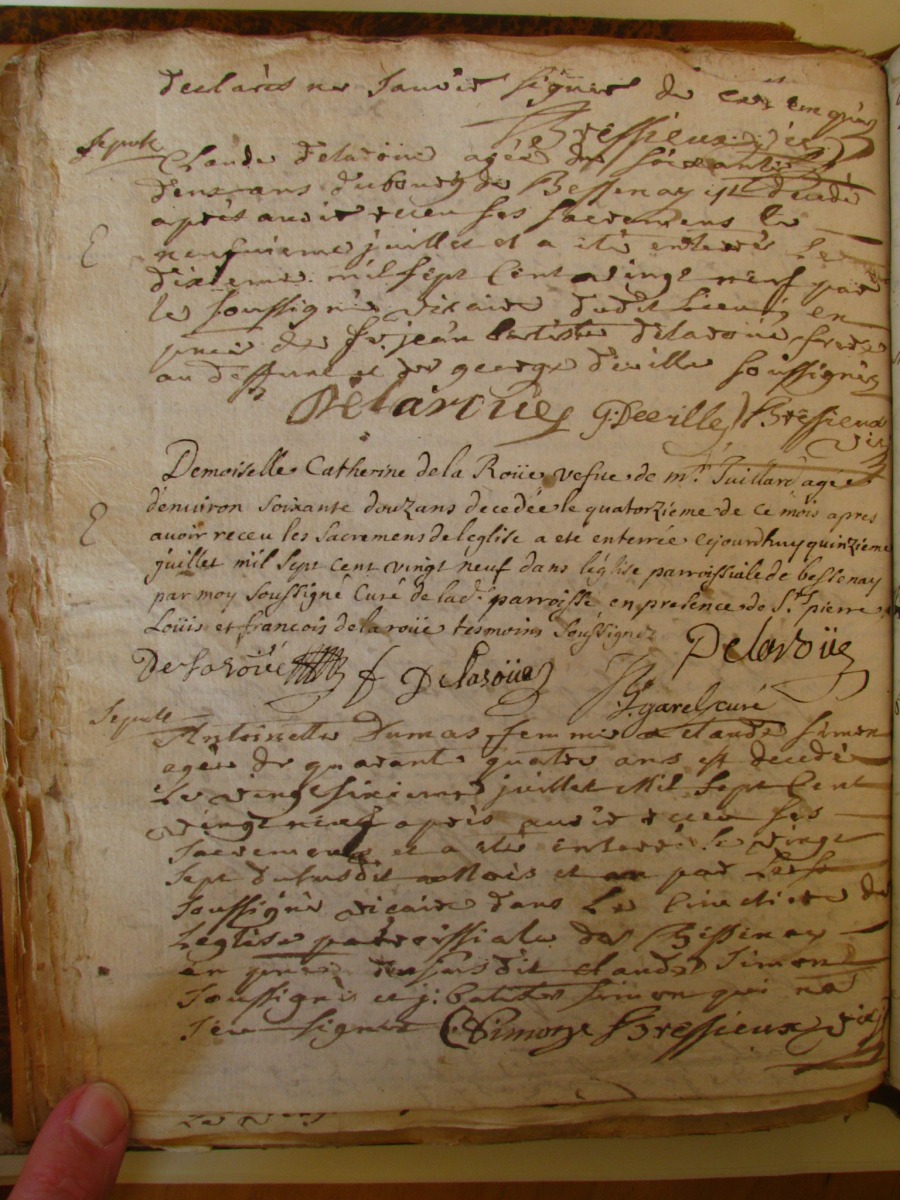 declarés ne savoir signer de ce enquis
Bressieux vic
Sepult
Claude delaroüe agée de soixante
deux ans du bourg de Bessenay est decedé
apres avoir receu ses sacremens le
neufvieme juillet et a été enterré le
dixieme mil sept cent vingt neuf par
le soussigné vicaire dudit lieu en
pnce de Sr. jean batiste delaroüe frere
au deffunt et de george deville soussignés
Delaroüe G: Deville Bressieux
vic
Demoiselle Catherine de la Roüe vefue de mr. Juillard agée
denuiron soixante douz ans decedée le quatorzieme de ce mois apres
auoir receu les sacremens de leglise a ete enterrée cejourdhuy quinzieme
juillet mil sept cent vingt neuf dans léglise parroissiale de bessenay
par moy soussigné Curé de lad. parroisse en presence de Sr. pierre
Loüis et francois de la roüe tesmoins soussignez
Delaroüe
Delaroüe f Delaroüe
garel curé
Sepult
Antoinette Dumas femme a claude simon
agée de quarante quatre ans est decedé
le vingt sixieme juillet Mil sept Cent
vingt neuf apres avoir receu ses
sacremens et a été enterré le vingt
sept du susdit Mois et an par le
soussigné vicaire dans Le Cimetiere de
Leglise parroissiale de Bessenay
en pnce du susdit claude Simon
soussigné et j: batiste simon qui na
sceu signer C Simon Bressieux vic